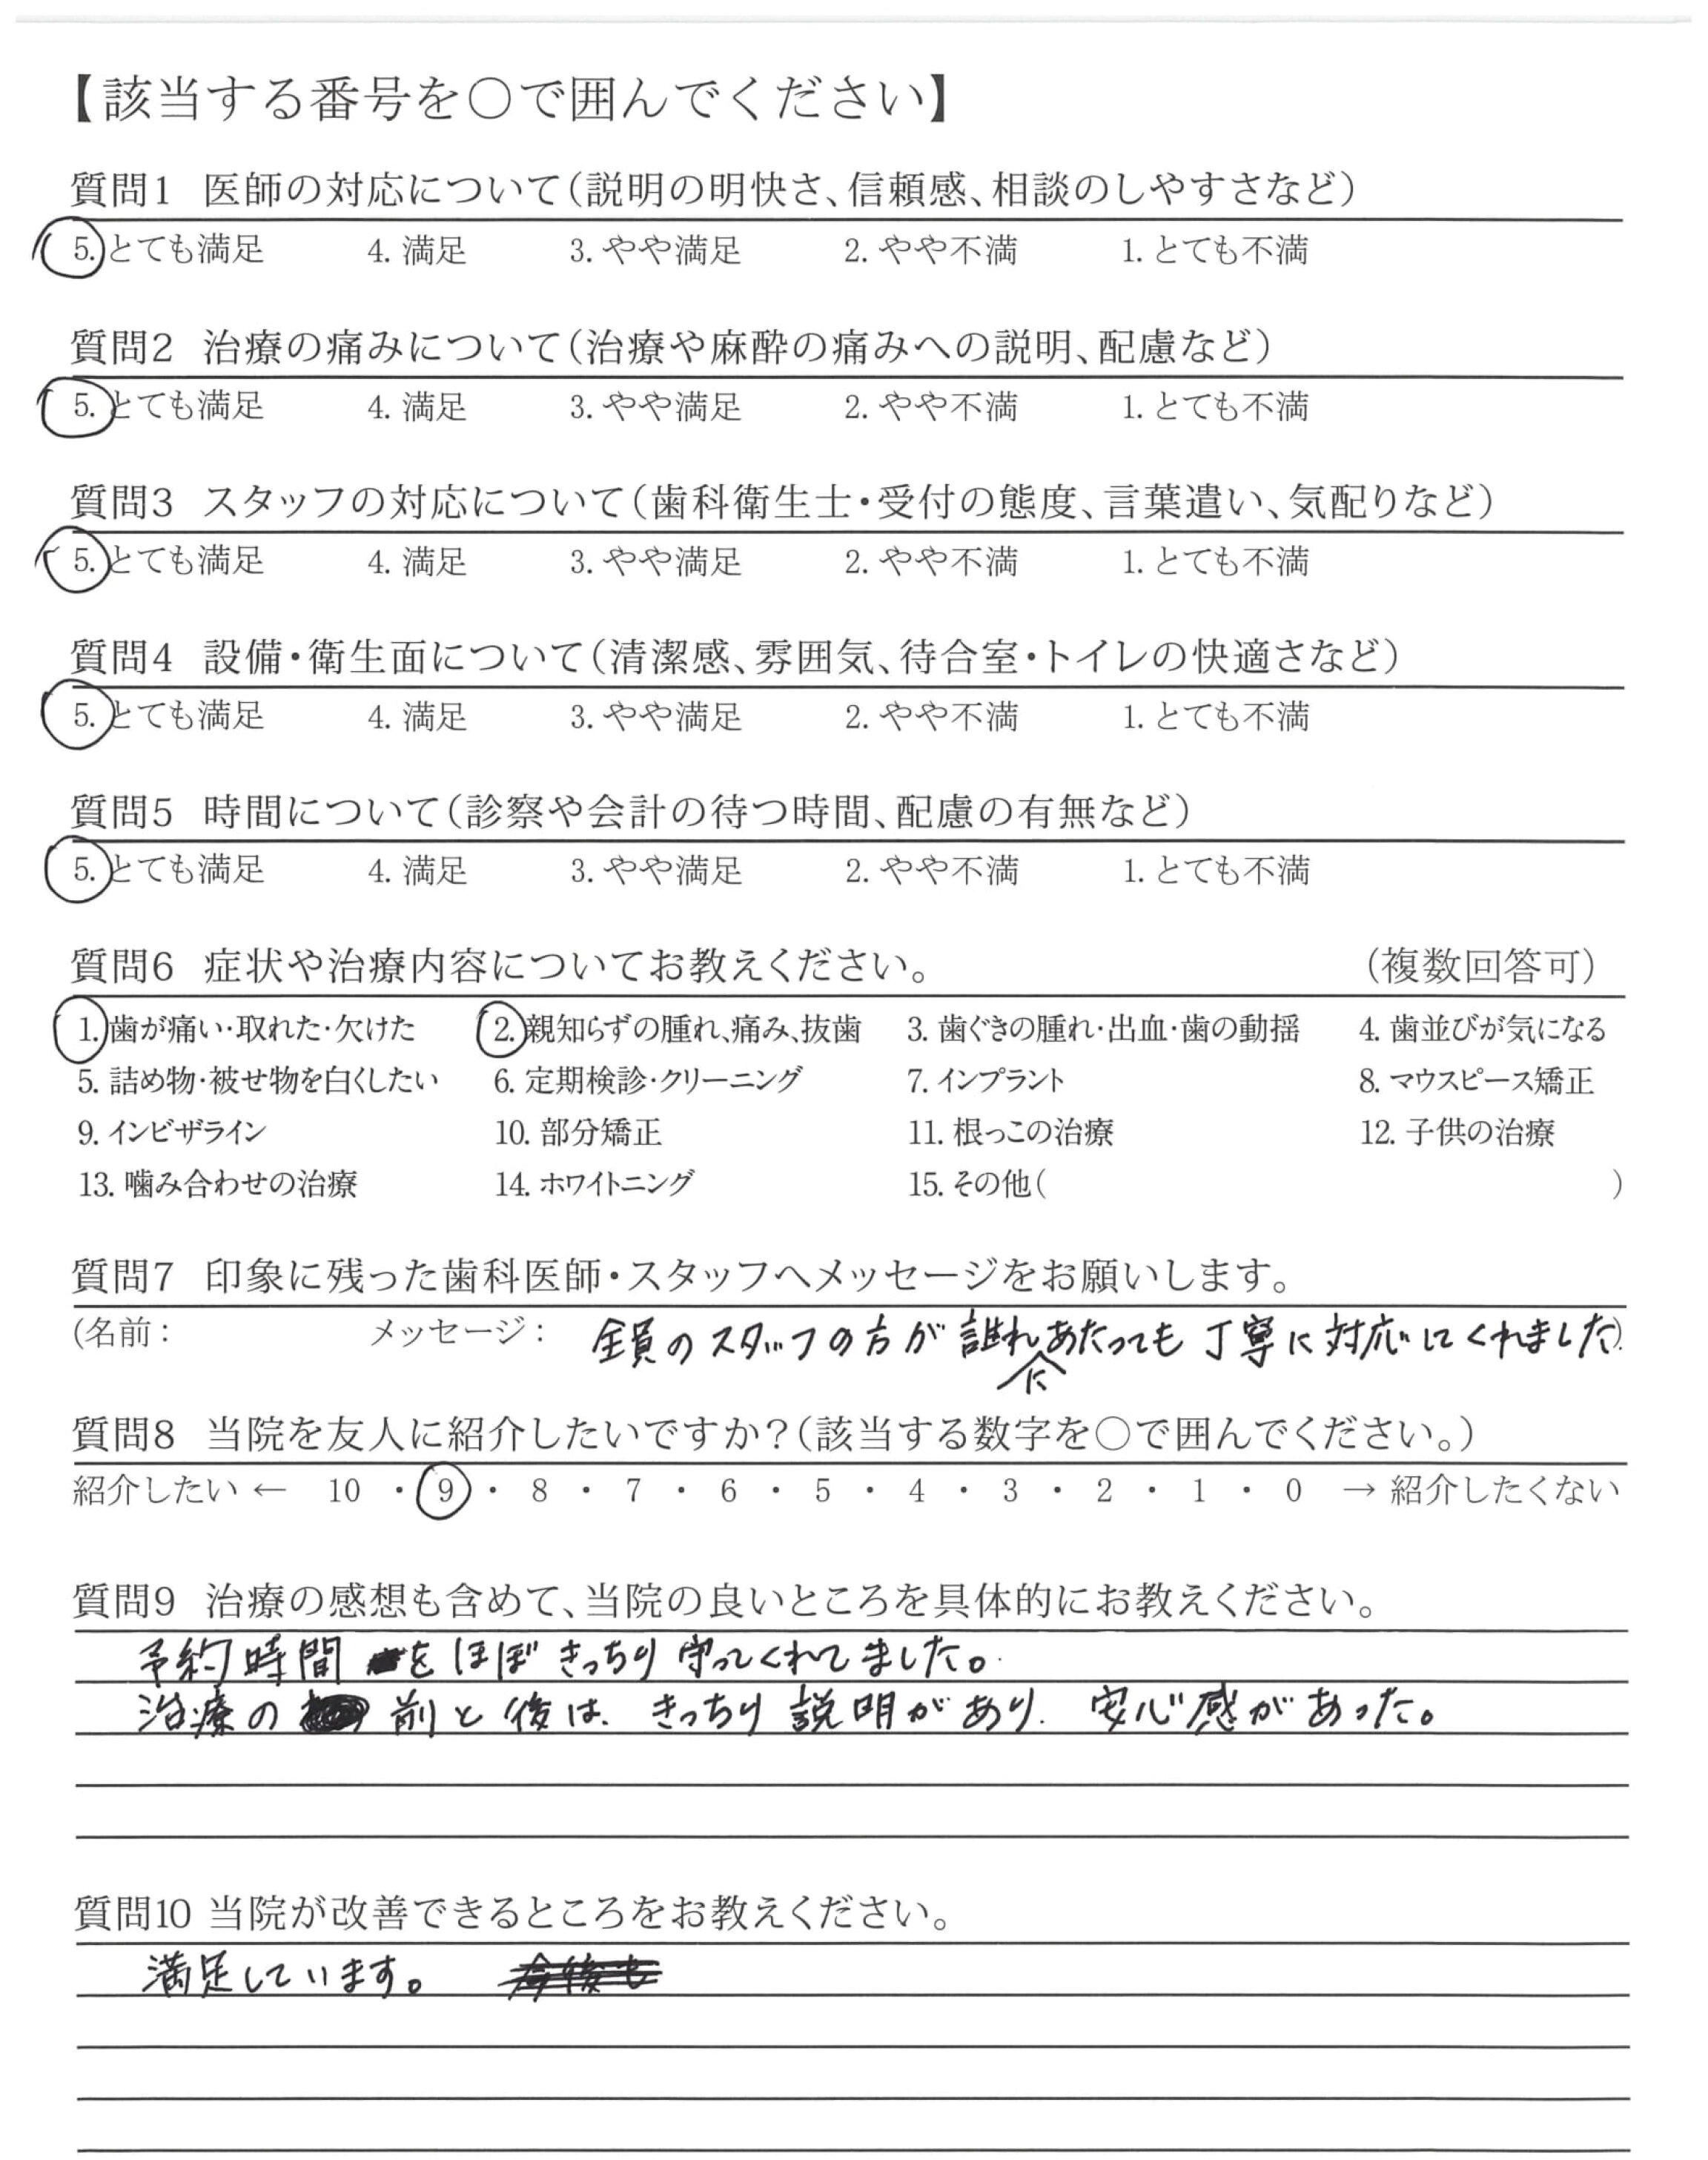 【該当する番号を○で囲んでください】
質問1 医師の対応について（説明の明快さ、信頼感、相談のしやすさなど）
5. とても満足 4. 満足 3. やや満足 2. やや不満 1. とても不満
質問2 治療の痛みについて（治療や麻酔の痛みへの説明、配慮など）
5. とても満足 4. 満足 3. やや満足 2. やや不満 1. とても不満
質問3 スタッフの対応について（歯科衛生士・受付の態度、言葉遣い、気配りなど）
5. とても満足 4. 満足 3. やや満足 2. やや不満 1. とても不満
質問4 設備・衛生面について（清潔感、雰囲気、待合室・トイレの快適さなど）
5. とても満足 4. 満足 3. やや満足 2. やや不満 1. とても不満
質問5 時間について（診察や会計の待つ時間、配慮の有無など）
5. とても満足 4. 満足 3. やや満足 2. やや不満 1. とても不満
質問6 症状や治療内容についてお教えください。 （複数回答可）
1. 歯が痛い・取れた・欠けた 2. 親知らずの腫れ、痛み、抜歯 3. 歯ぐきの腫れ・出血・歯の動揺 4. 歯並びが気になる
5. 詰め物・被せ物を白くしたい 6. 定期検診・クリーニング 7. インプラント 8. マウスピース矯正
9. インビザライン 10. 部分矯正 11. 根っこの治療 12. 子供の治療
13. 噛み合わせの治療 14. ホワイトニング 15. その他（ ）
質問7 印象に残った歯科医師・スタッフへメッセージをお願いします。
（名前： メッセージ： 全員のスタッフの方が誰れにあたっても丁寧に対応してくれました）
質問8 当院を友人に紹介したいですか？（該当する数字を○で囲んでください。）
紹介したい ← 10 ・ 9 ・ 8 ・ 7 ・ 6 ・ 5 ・ 4 ・ 3 ・ 2 ・ 1 ・ 0 → 紹介したくない
質問9 治療の感想も含めて、当院の良いところを具体的にお教えください。
予約時間をほぼきっちり守ってくれてました。
治療の前と後は、きっちり説明があり、安心感があった。
質問10 当院が改善できるところをお教えください。
満足しています。 今後も